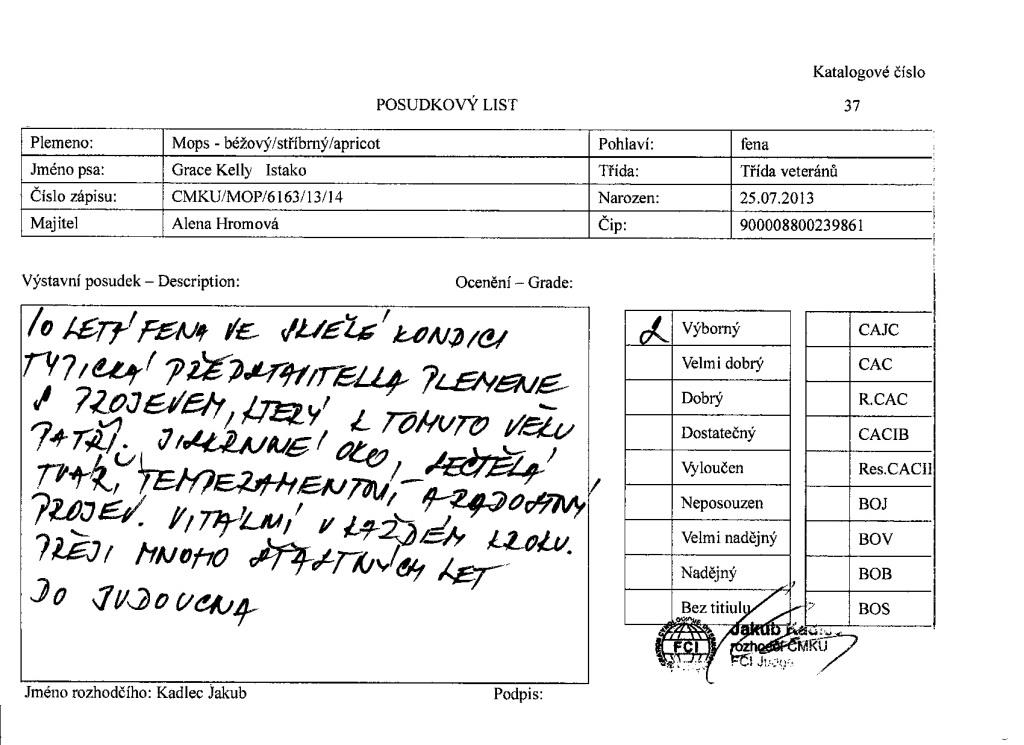 Katalogové číslo
POSUDKOVÝ LIST 37
Plemeno: Mops - béžový/stříbrný/apricot Pohlaví: fena
Jméno psa: Grace Kelly Istako Třída: Třída veteránů
Číslo zápisu: CMKU/MOP/6163/13/14 Narozen: 25.07.2013
Majitel Alena Hromová Čip: 900008800239861
Výstavní posudek – Description: Ocenění – Grade:
10 LETÁ FENA VE SKVĚLÉ KONDICI
TYPICKÁ PŘEDSTAVITELKA PLEMENE
S PROJEVEM, KTERÝ K TOMUTO VĚKU
PATŘÍ. JISKRNNÉ OKO,
TVÁŘ, TEMPERAMENTNÍ A RADOSTNÝ
PROJEV. VITÁLNÍ V KAŽDÉM KROKU.
PŘEJI MNOHO ŠŤASTNÝCH LET
DO BUDOUCNA
Výborný CAJC
Velmi dobrý CAC
Dobrý R.CAC
Dostatečný CACIB
Vyloučen Res.CACII
Neposouzen BOJ
Velmi nadějný BOV
Nadějný BOB
Bez titiulu BOS
FCI
Jakub
rozhodčí ČMKU
FCI Judge
Jméno rozhodčího: Kadlec Jakub Podpis: